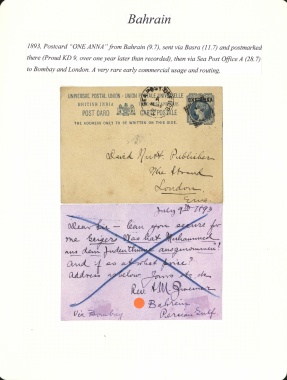 Bahrain
1893, Postcard "ONE ANNA" from Bahrain (9.7), sent via Basra (11.7) and postmarked
there (Proud KD 9, over one year later than recorded), then via Sea Post Office A (28.7)
to Bombay and London. A very rare early commercial usage and routing.
UNIVERSAL POSTAL UNION UNION POSTALE UNIVERSELLE
BRITISH INDIA
POST CARD CARTE POSTALE
THE ADDRESS ONLY TO BE WRITTEN ON THIS SIDE.
ONE ANNA
David Nutt Publisher
The Strand
London.
July 9th 1893
Dear Sir — Can you secure for
me Geigers Was hat Muhammed
aus dem Judenthume
And if so at what price?
Address as below. Yours
Rev. S M Zwemer
Bahrein
via Bombay Persian Gulf